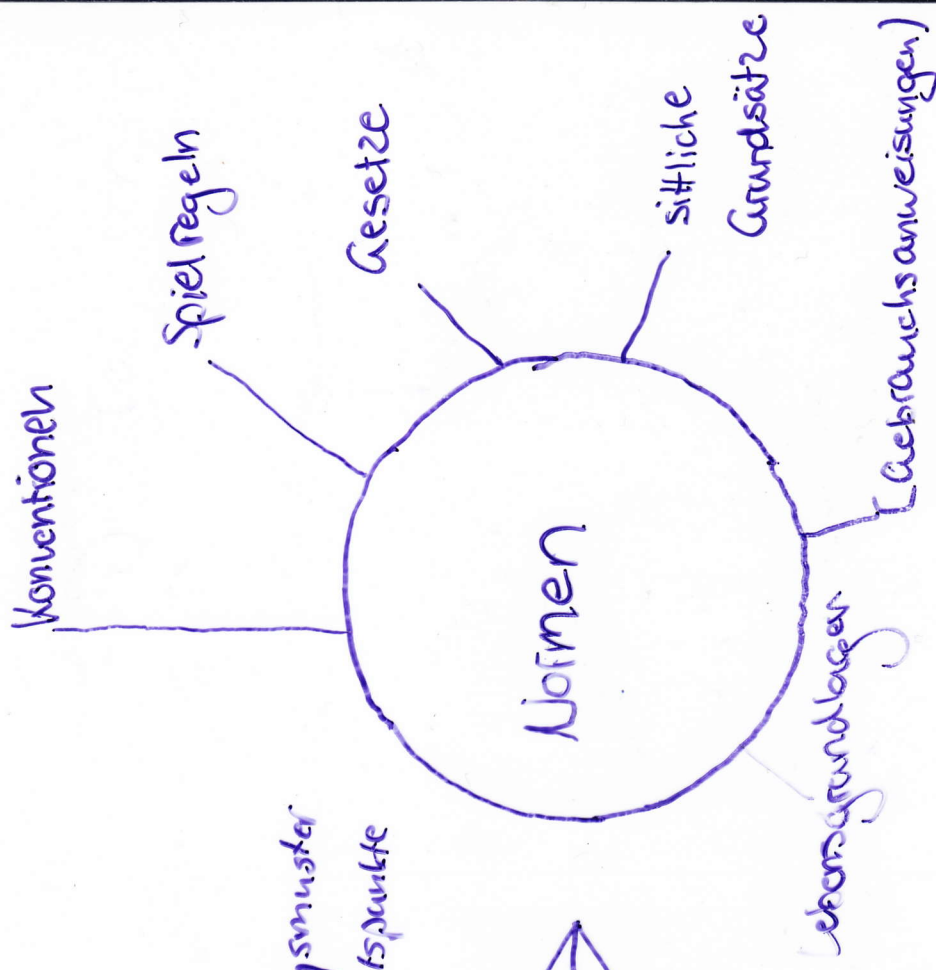 Konventionen
Spielregeln
Gesetze
sittliche
Grundsätze
(Gebrauchsanweisungen)
ebensgrundlagen
Normen
smuster
tspunkte